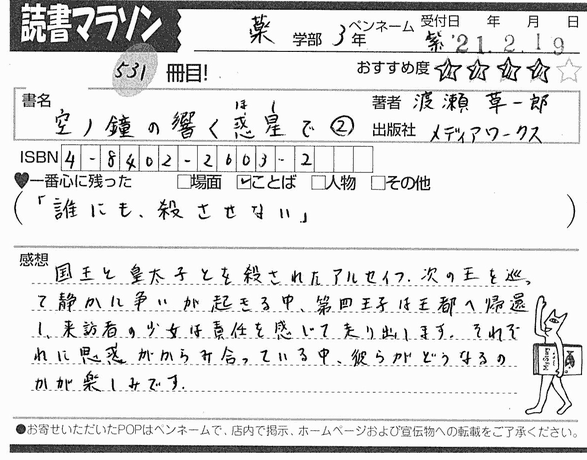 読書マラソン
薬 学部 3年 ペンネーム 紫 受付日 年 月 日
'21.2.19
531 冊目! おすすめ度 ★★★★☆
書名 空ノ鐘の響く惑星で② 著者 渡瀬草一郎
ほし
出版社 メディアワークス
ISBN 4-8402-2603-2
♥一番心に残った □場面 ☑ことば □人物 □その他
(「誰にも、殺させない」)
感想
国王と皇太子とを殺されたアルセイフ。次の王を巡っ
て静かに争いが起きる中、第四王子は王都へ帰還
し、来訪者の少女は責任を感じて走り出します。それぞ
れに思惑がからみ合っている中、彼らがどうなるの
かが楽しみです。
●お寄せいただいたPOPはペンネームで、店内で掲示、ホームページおよび宣伝物への転載をご了承ください。